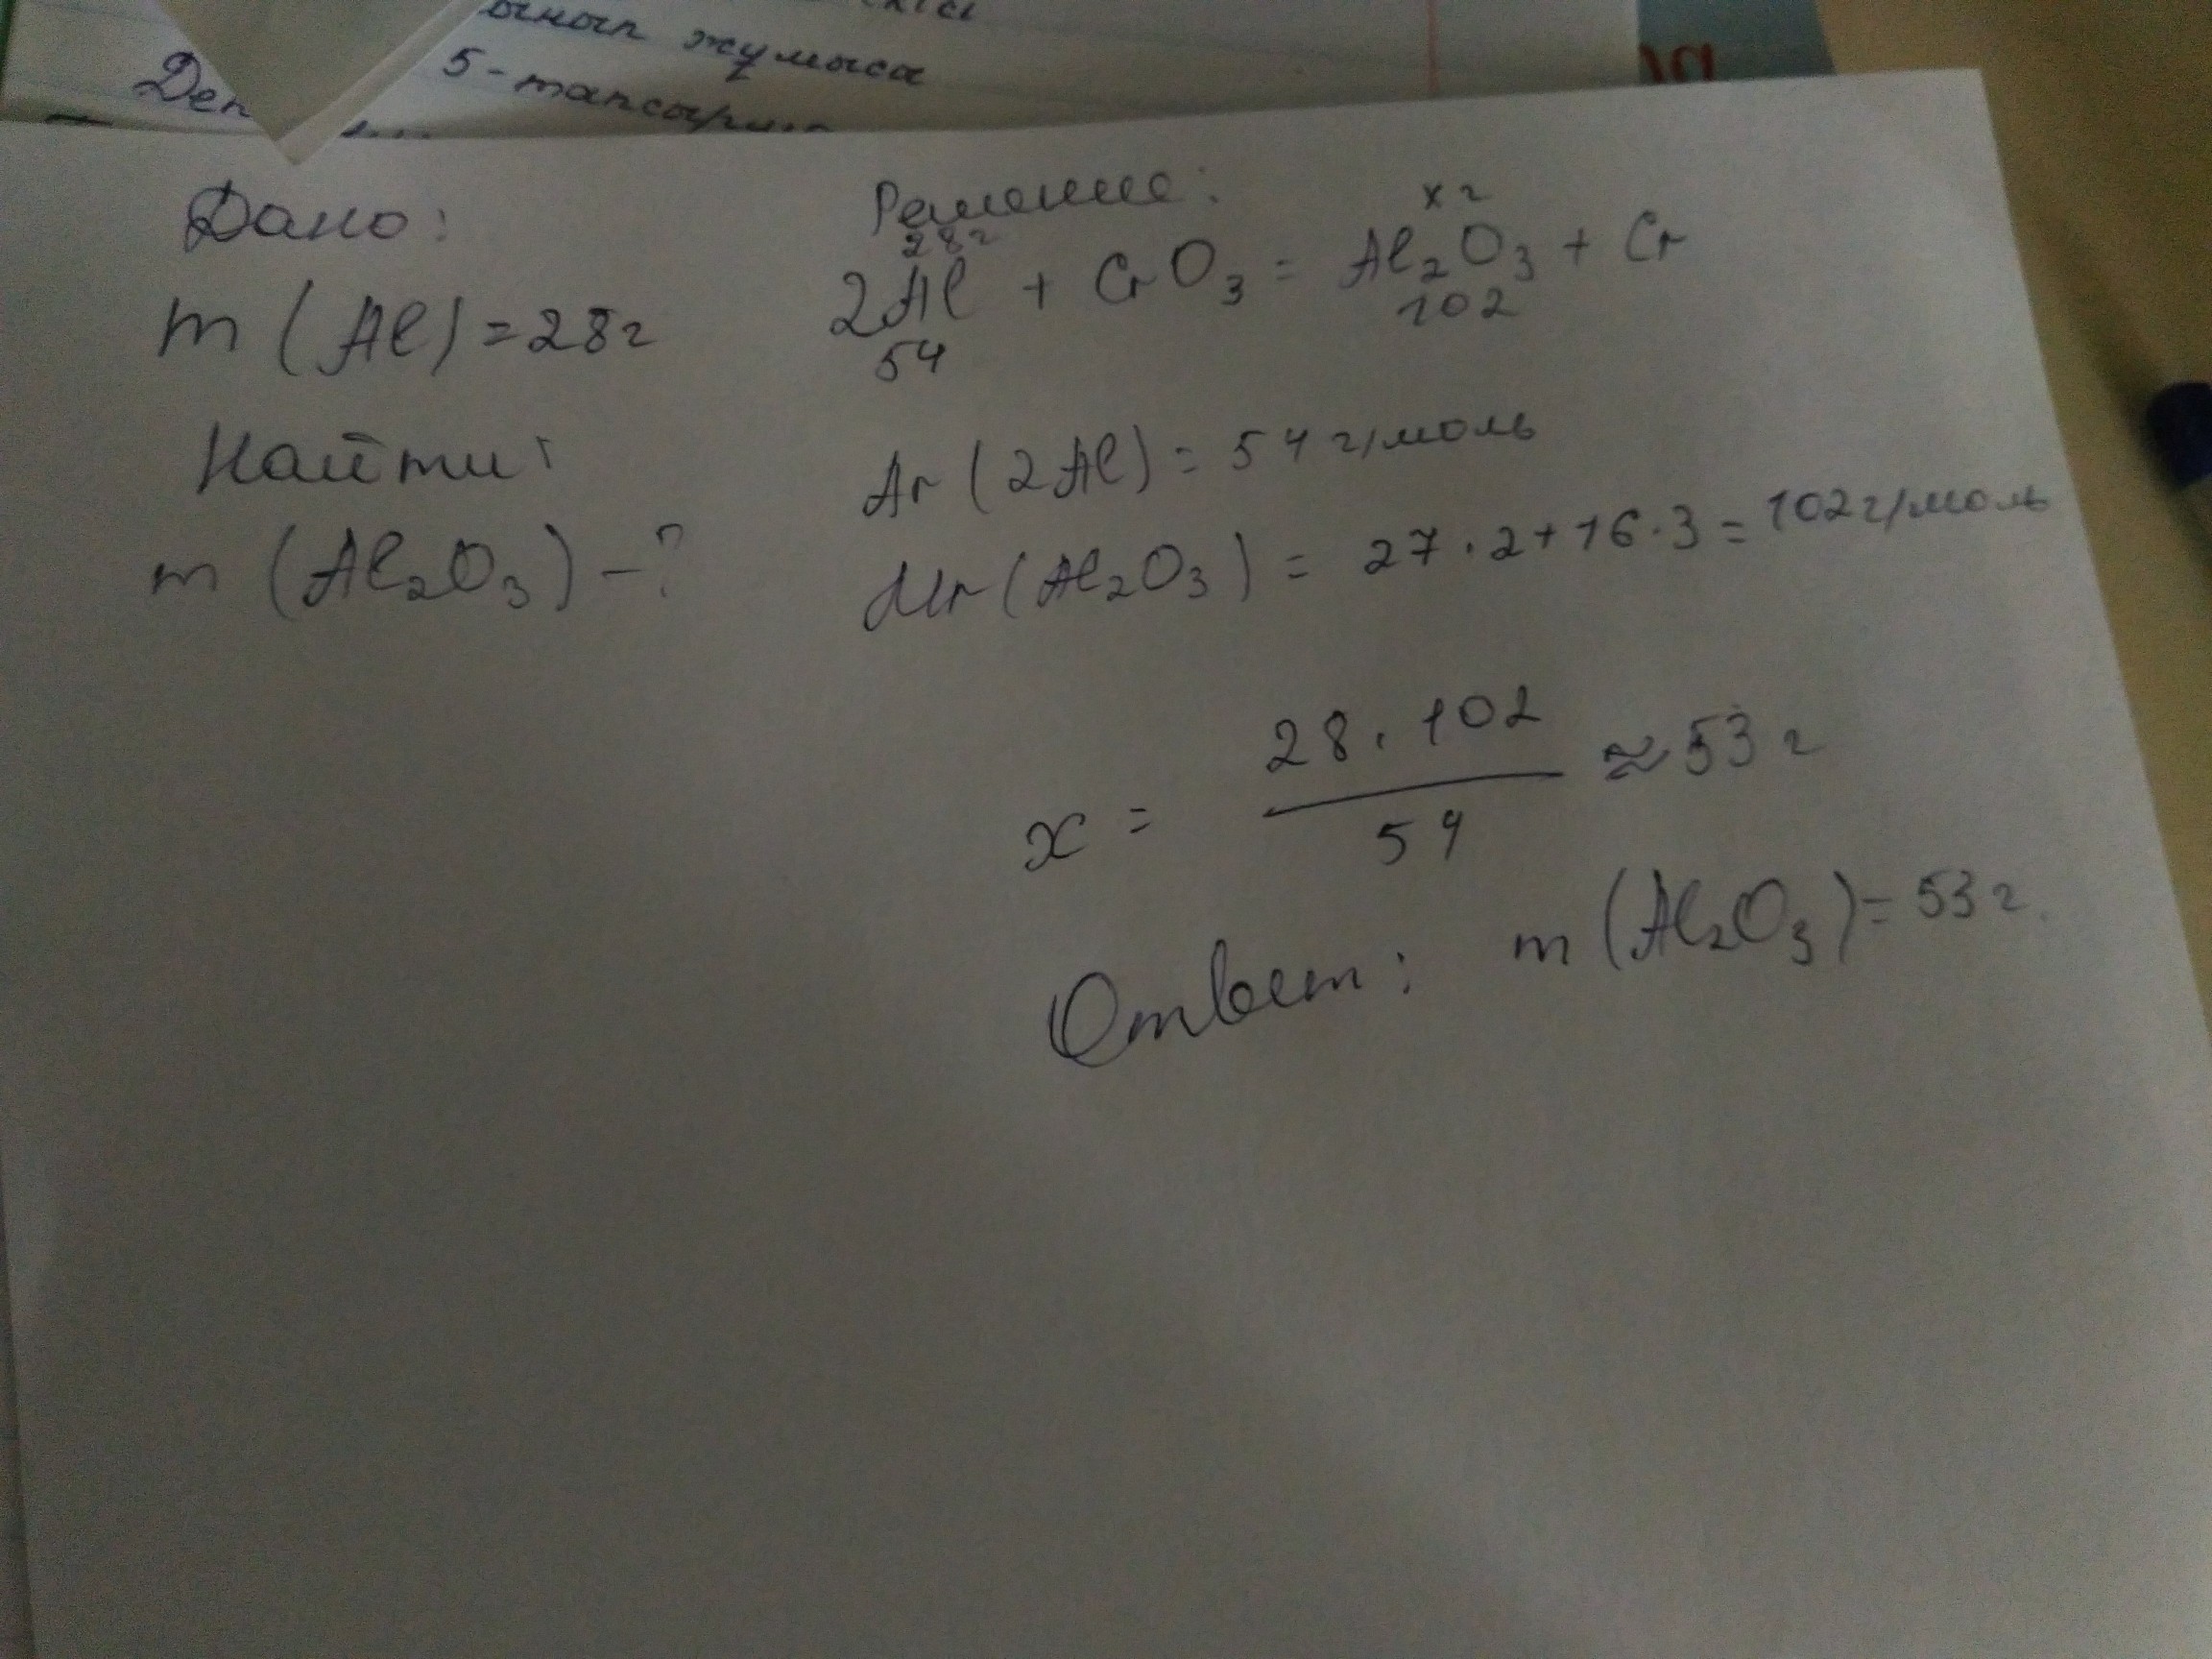 жумыса
5-тапсырма
Дано:
m (Al) = 28г
Найти:
m (Al₂O₃) - ?
Решение:
28г хг
2Al + CrO₃ = Al₂O₃ + Cr
54 102
Ar (2Al) = 54 г/моль
Mr (Al₂O₃) = 27 · 2 + 16 · 3 = 102 г/моль
28 · 102
x = ≈ 53 г
54
Ответ: m (Al₂O₃) = 53 г.